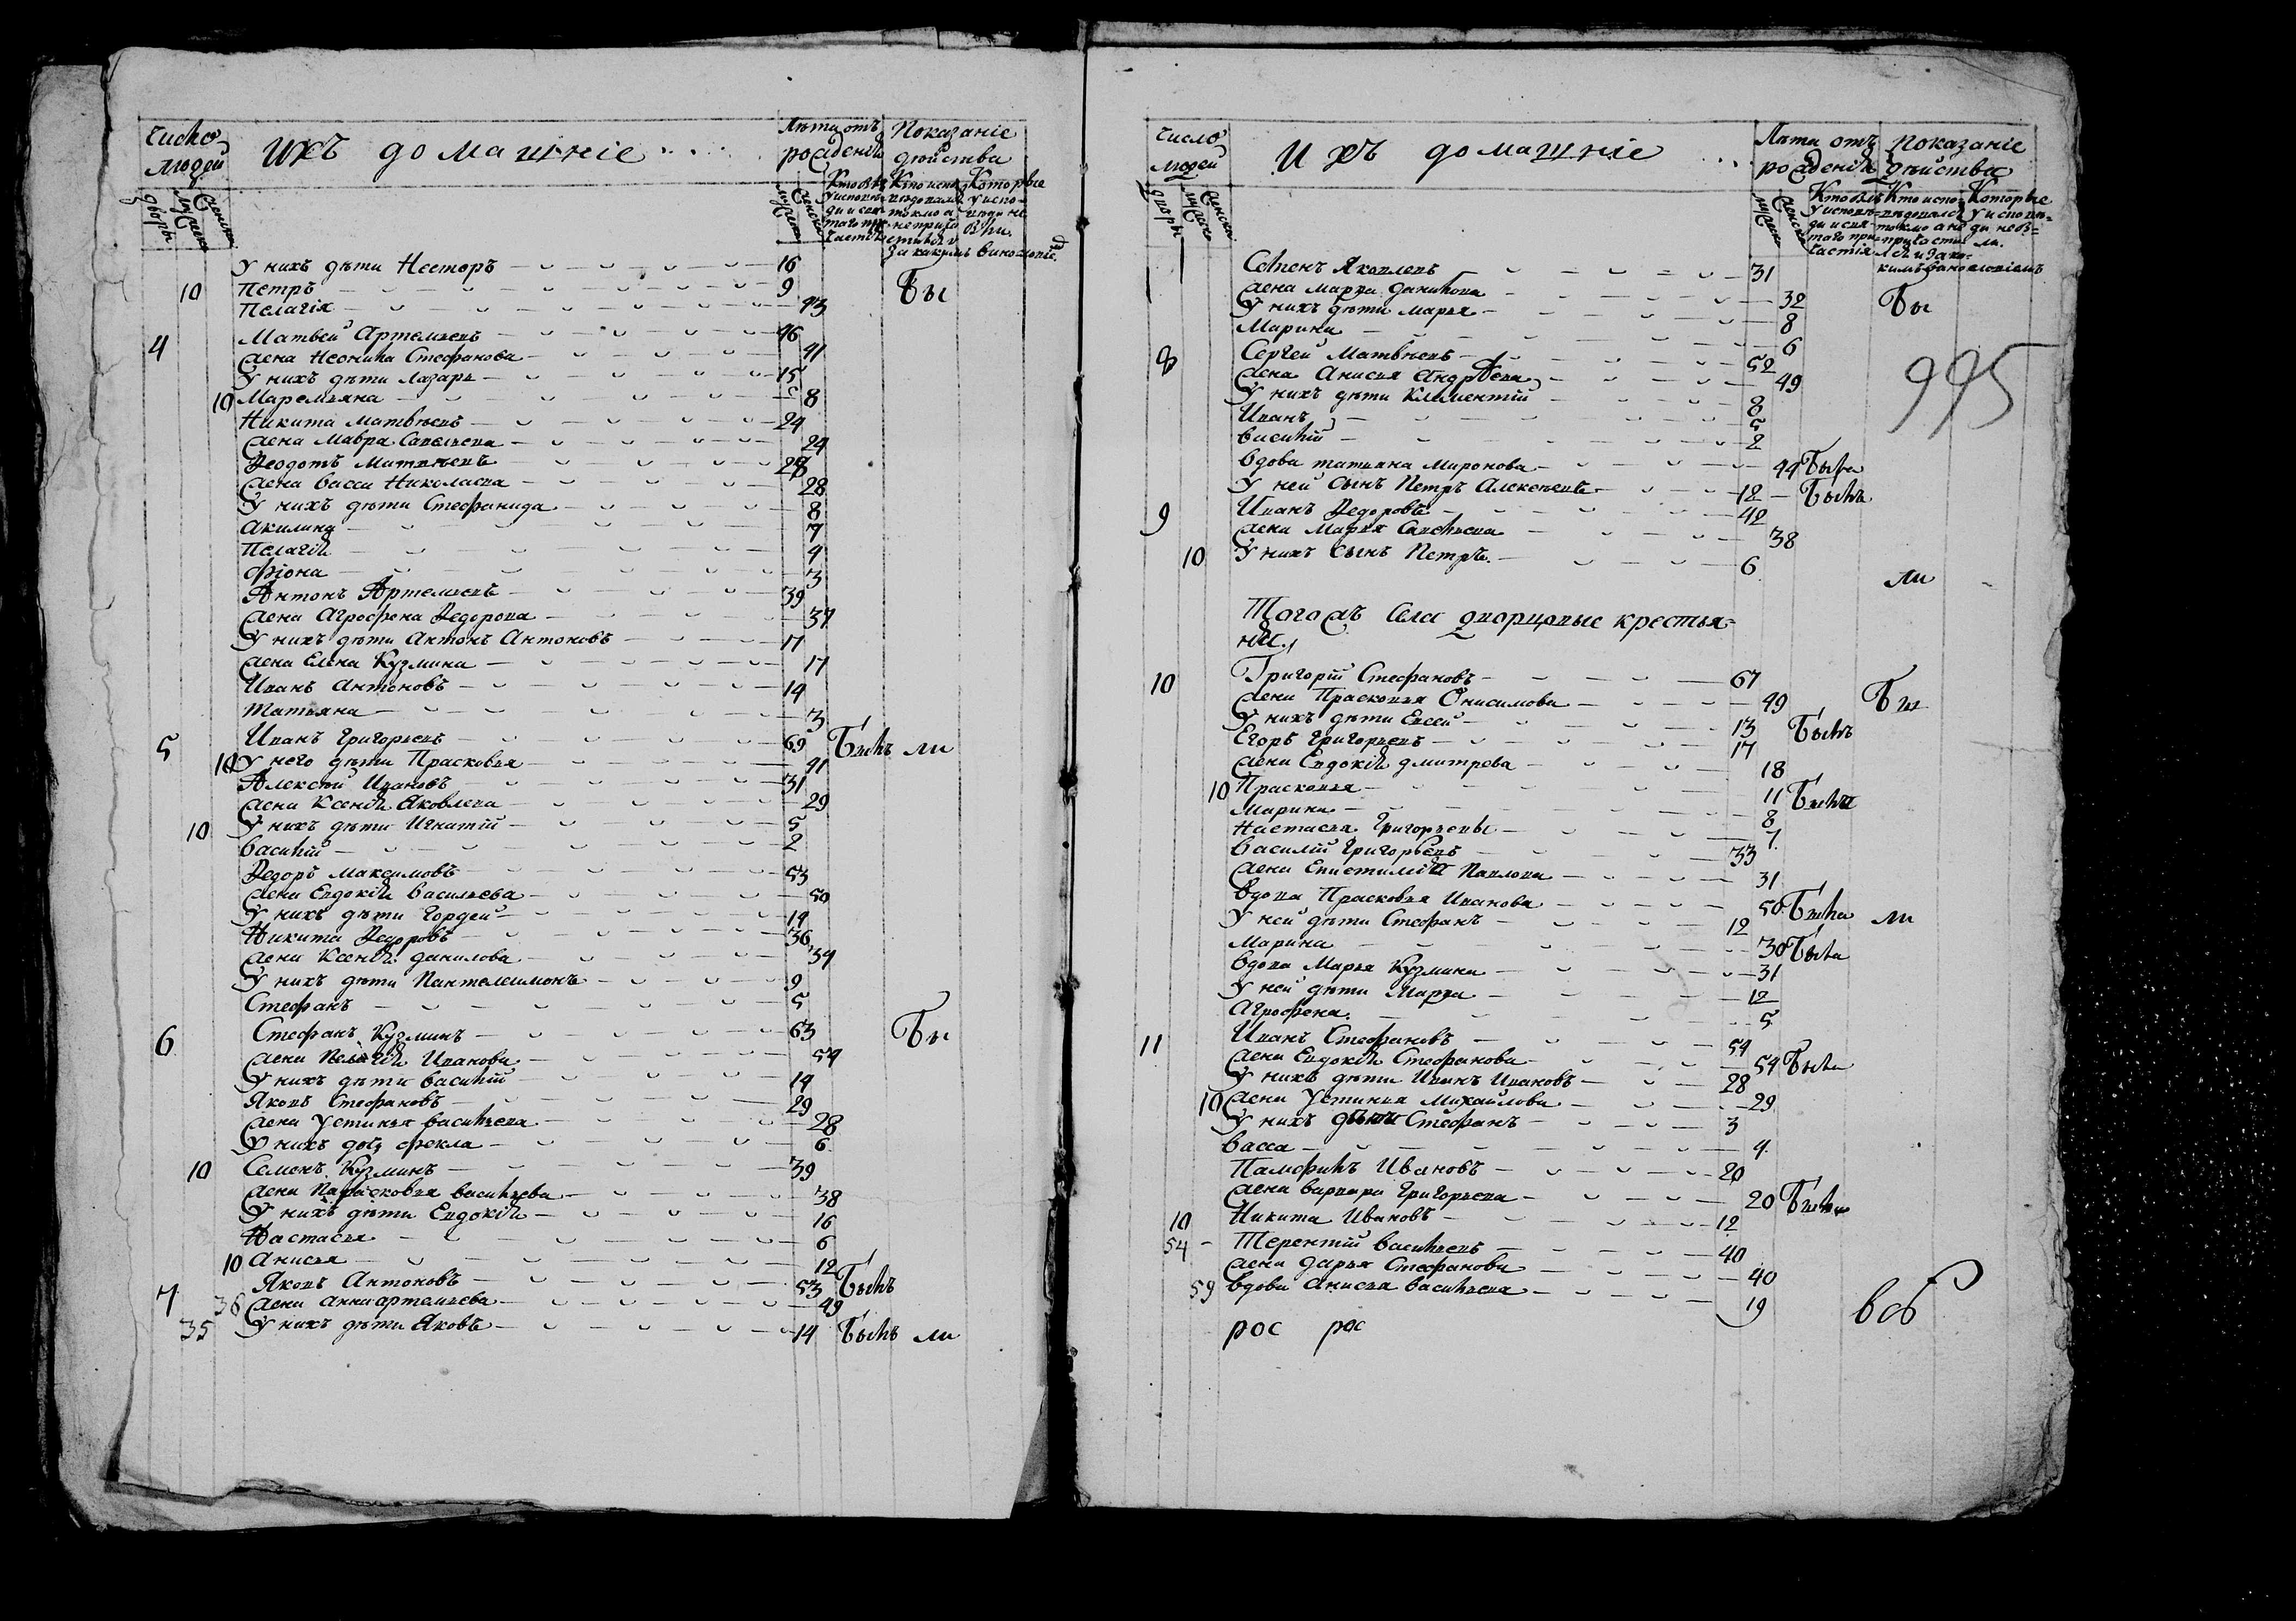 Число людей
ихъ домашніе
Лѣта отъ рожденія
Показаніе дѣйства
дворы
мужеска
женска
У нихъ дѣти Несторъ 16
10 Петръ 9 Бы
Пелагія 13
4 Матвей Артемьевъ 46
жена Неонила Стефанова 41
У нихъ дѣти Лазарь 15
10 Маремьяна 8
Никита Матвѣевъ 24
жена Мавра Савельева 24
Ѳеодотъ Матвѣевъ
жена васса Николаева 28
У нихъ дѣти Стефанида 8
Акилина 7
Пелагія 4
Фіона 3
Антонъ Артемьевъ 39
жена Агрофена Ѳедорова 37
У нихъ дѣти Антонъ Антоновъ 17
жена Елена Кузмина 17
Иванъ Антоновъ 14
Татьяна 3
5 Иванъ Григорьевъ 69 Былъ ли
10 У него дѣти Прасковья 41
Алексѣй Ивановъ 31
жена Ксенія Яковлева 29
10 У нихъ дѣти Игнатій 5
василій 2
Ѳедоръ Максимовъ 53
жена Евдокія васильева 50
У нихъ дѣти Гордей 14
Никита Ѳедоровъ 36
жена Ксенія данилова 34
У нихъ дѣти Пантелеимонъ 9
Стефанъ 5
6 Стефанъ Кузминъ 63 Бы
жена Пелагія Иванова 54
У нихъ дѣти василій 14
Яковъ Стефановъ 29
жена Устинья васильева 28
У нихъ дочь фекла 6
10 Семенъ Кузминъ 39
жена Парасковья васильева 38
У нихъ дѣти Евдокія 16
Настасья 6
10 Анисья 12
7 Яковъ Антоновъ 53 Былъ
36 жена Анна артемьева 49
35 У нихъ дѣти Яковъ 14 Былъ ли
число людей
ихъ домашніе
Лѣта отъ рожденія
показаніе дѣйства
дворы
мужеска
женска
Семенъ Яковлевъ 31
жена марѳа данилова 32 Бы
У нихъ дѣти марья 8
Марина 6
8 Сергей Матвѣевъ 52
995
жена Анисья Андрѣева 49
У нихъ дѣти Климентій 8
Иванъ 5
василій 2
вдова татьяна Миронова 44 Была
У ней сынъ Петръ Алексѣевъ 12 Былъ
9 Иванъ Ѳедоровъ 42
жена Марья Савельева 38
10 У нихъ сынъ Петръ 6
ли
Тогожъ села дворцовые крестья-
не
10 Григорій Стефановъ 67
жена Прасковья Онисимова 49 Бы
У нихъ дѣти Евсей 13 Былъ
Егоръ Григорьевъ 17
жена Евдокія дмитрева 18
10 Прасковья 11
Марина 8
Настасья Григорьевы 7
василій Григорьевъ 33
жена Епистимія Павлова 31
вдова Прасковья Иванова 50 Была ли
У ней дѣти Стефанъ 12
Марина 30 Была
вдова Марья Кузмина 31
У ней дѣти Марѳа 12
Агрофена 5
11 Иванъ Стефановъ 54
жена Евдокія Стефанова 54 Была
У нихъ дѣти Иванъ Ивановъ 28
10 жена Устинья Михайлова 29
У нихъ дѣти Стефанъ 3
васса 4
Памфилъ Ивановъ 20
жена варвара Григорьева 20 Была
10 Никита Ивановъ 12
54 Терентій васильевъ 40
жена дарья Стефанова 40
59 вдова Анисья васильева 19
рос рос